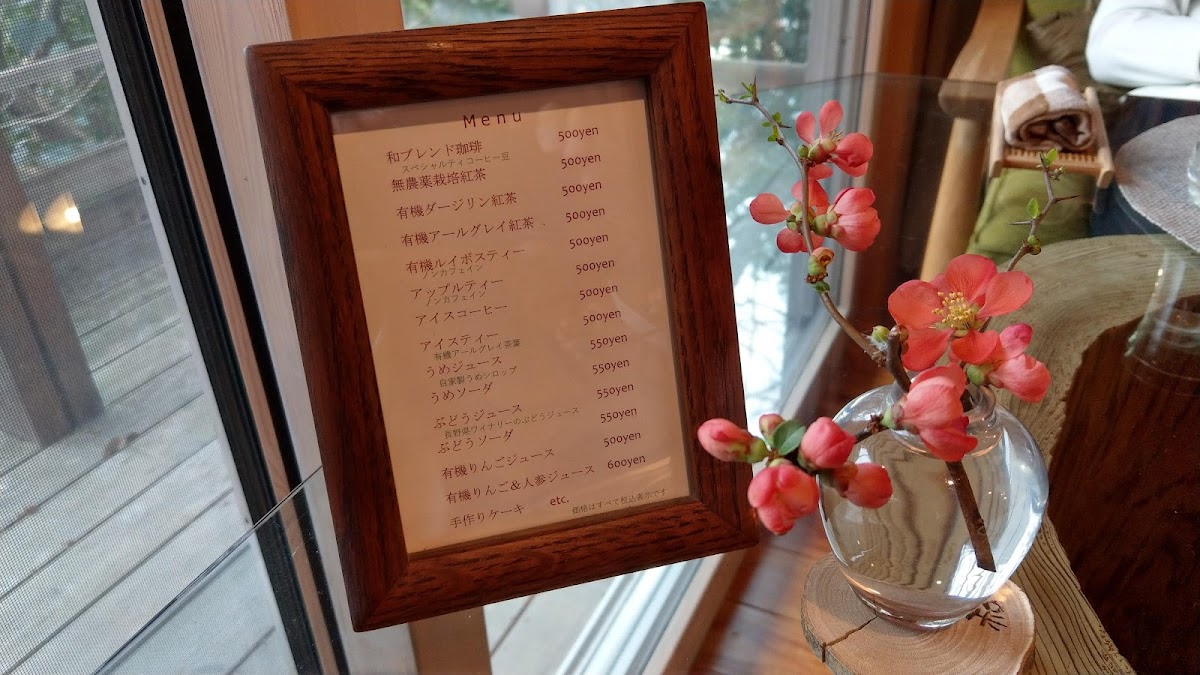 Menu
和ブレンド珈琲 500yen
スペシャルティコーヒー豆
無農薬栽培紅茶 500yen
有機ダージリン紅茶 500yen
有機アールグレイ紅茶 500yen
有機ルイボスティー 500yen
ノンカフェイン
アップルティー 500yen
ノンカフェイン
アイスコーヒー 500yen
アイスティー 500yen
有機アールグレイ茶葉
うめジュース 550yen
自家製うめシロップ
うめソーダ 550yen
ぶどうジュース 550yen
長野県ワイナリーのぶどうジュース
ぶどうソーダ 550yen
有機りんごジュース 500yen
有機りんご&人参ジュース 600yen
手作りケーキ etc.
価格はすべて税込表示です